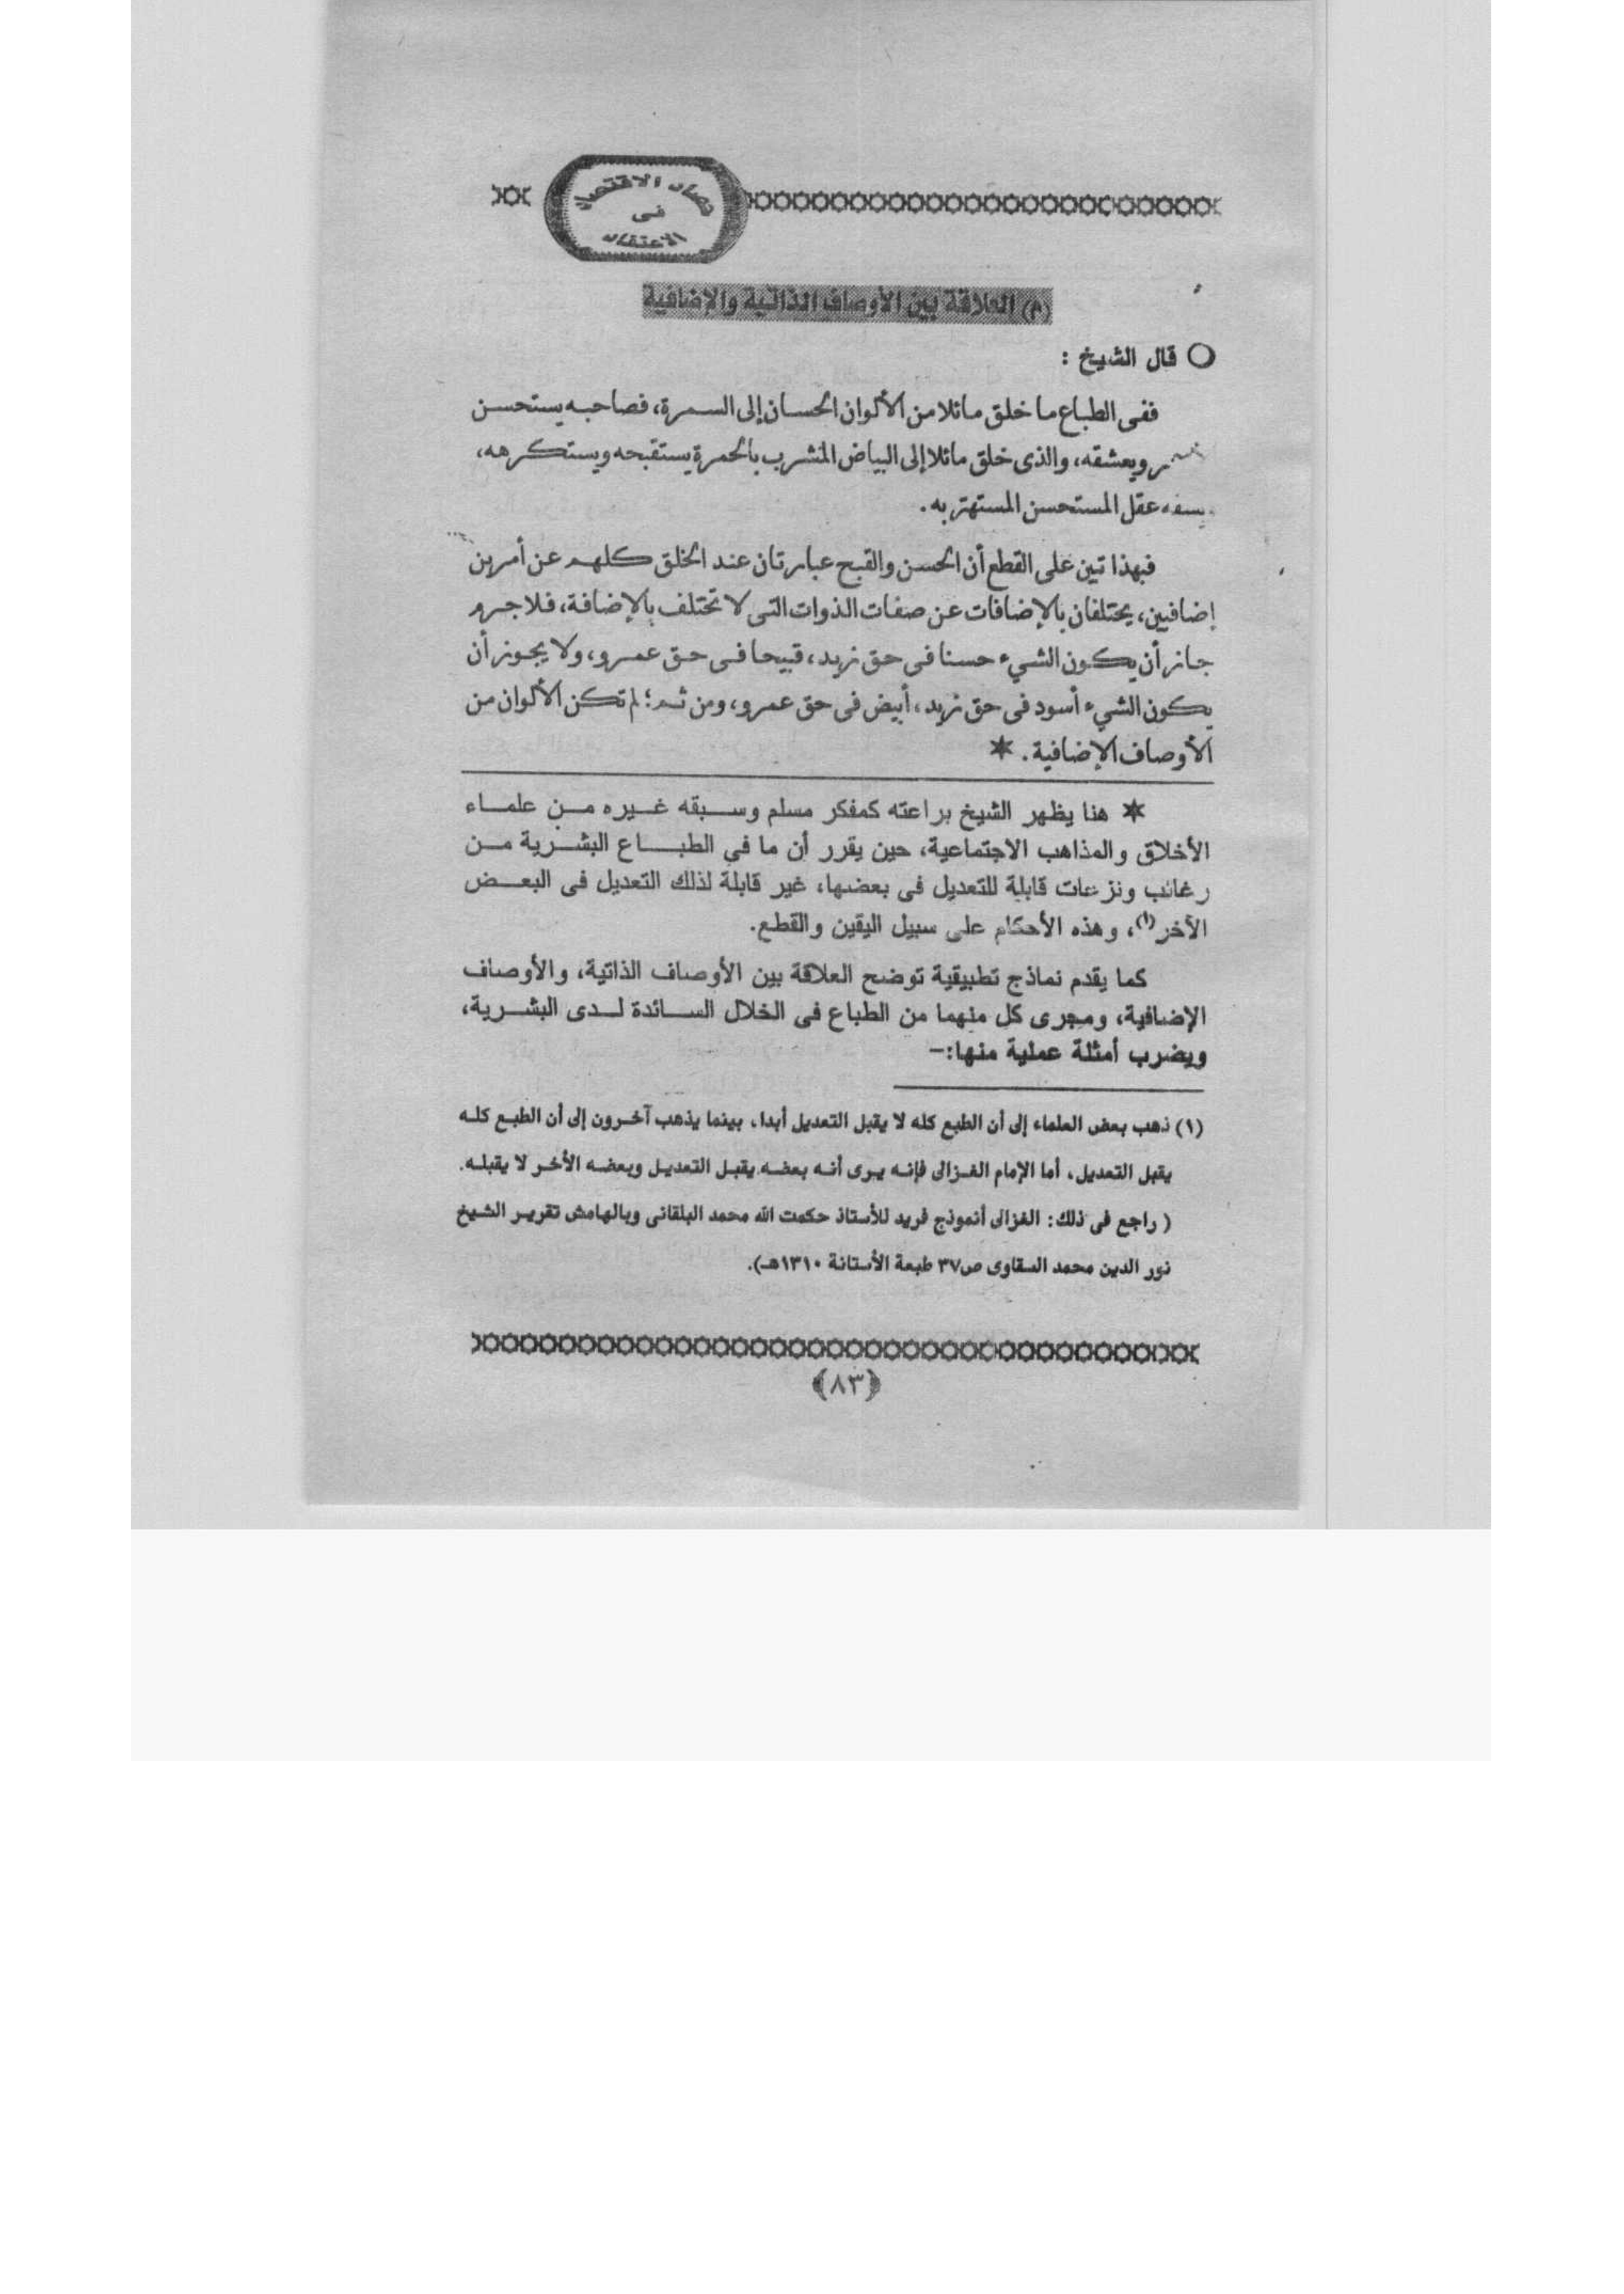 قصاد الاقتصاد
فى
الاعتقاد
(م) العلاقة بين الأوصاف الذاتية والإضافية
قال الشيخ :
ففى الطباع ما خلق مائلا من الألوان الحسان إلى السمرة، فصاحبه يستحسن
ويعشقه، والذى خلق مائلا إلى البياض المشرب بالحمرة يستقبحه ويستكرهه،
يسفه عقل المستحسن المستهتر به.
فبهذا تبين على القطع أن الحسن والقبح عبارتان عند الخلق كلهم عن أمرين
إضافيين، يختلفان بالإضافات عن صفات الذوات التى لا تختلف بالإضافة، فلا جرم
جاز أن يكون الشيء حسنا فى حق زيد، قبيحا فى حق عمرو، ولا يجوز أن
يكون الشيء أسود فى حق زيد، أبيض فى حق عمرو، ومن ثم؛ لم تكن الألوان من
الأوصاف الإضافية. *
* هنا يظهر الشيخ براعته كمفكر مسلم وسبقه غيره من علماء
الأخلاق والمذاهب الاجتماعية، حين يقرر أن ما في الطباع البشرية من
رغائب ونزعات قابلة للتعديل فى بعضها، غير قابلة لذلك التعديل فى البعض
الآخر(١)، وهذه الأحكام على سبيل اليقين والقطع.
كما يقدم نماذج تطبيقية توضح العلاقة بين الأوصاف الذاتية، والأوصاف
الإضافية، ومجرى كل منهما من الطباع فى الخلال السائدة لدى البشرية،
ويضرب أمثلة عملية منها:-
(١) ذهب بعض العلماء إلى أن الطبع كله لا يقبل التعديل أبدا، بينما يذهب آخرون إلى أن الطبع كله
يقبل التعديل، أما الإمام الغزالى فإنه يرى أنه بعضه يقبل التعديل وبعضه الأخر لا يقبله.
( راجع فى ذلك: الغزالى أنموذج فريد للأستاذ حكمت الله محمد البلقانى وبالهامش تقرير الشيخ
نور الدين محمد السقاوى ص٣٧ طبعة الأستانة ١٣١٠هـ).
(٨٣)